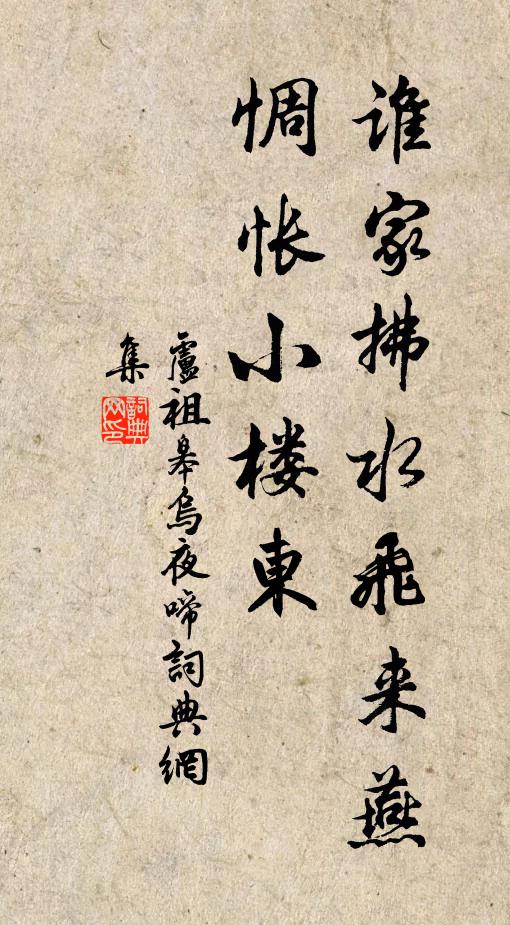 谁家拂水飛来燕
惆怅小楼東
盧祖皋烏夜啼詞典網
集
詞典
网印